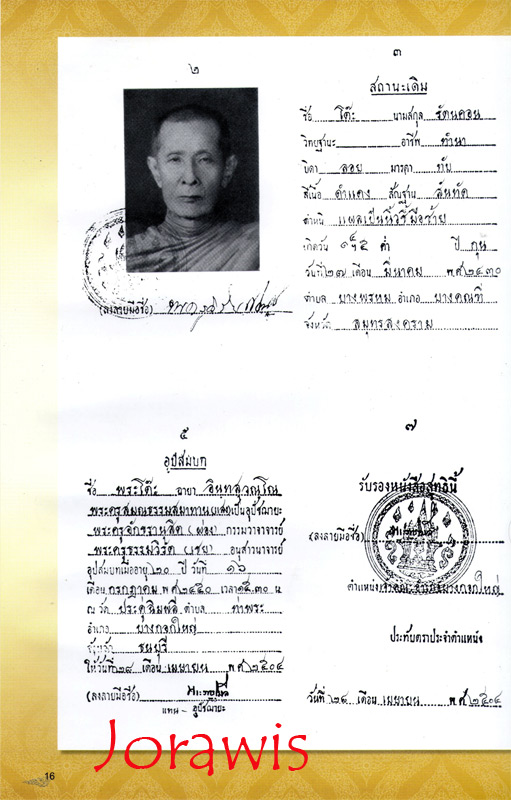 ๒
(ลงลายมือชื่อ)
๓
สถานะเดิม
ชื่อ โต๊ะ นามสกุล รัตนคอน
วิทยฐานะ อาชีพ ทำนา
บิดา ลอย มารดา ทับ
สีเนื้อ ดำแดง สัณฐาน สันทัด
ตำหนิ แผลเป็นนิ้วชี้มือซ้าย
เกิดวัน ปี กุน
วันที่ ๒๗ เดือน มีนาคม พ.ศ. ๒๔๓๐
ตำบล บางพรหม อำเภอ บางคณฑี
จังหวัด สมุทรสงคราม
๕
อุปสมบท
ชื่อ พระโต๊ะ ฉายา อินทสุวณฺโณ
พระครูสมณธรรมสมาทาน (แสง) เป็นอุปัชฌายะ
พระครูอักขรานุสิต (ผ่อง) กรรมวาจาจารย์
พระครูธรรมวิรัต (เชย) อนุสาวนาจารย์
อุปสมบทเมื่ออายุ ๒๐ ปี วันที่ ๑๖
เดือน กรกฎาคม พ.ศ. ๒๔๕๐ เวลา ๑๕.๓๐ น
ณ วัด ประดู่ฉิมพลี ตำบล ท่าพระ
อำเภอ บางกอกใหญ่
จังหวัด ธนบุรี
ให้วันที่ ๒๘ เดือน เมษายน พ.ศ. ๒๕๐๔
(ลงลายมือชื่อ)
แทน - อุปัชฌายะ
๗
รับรองหนังสือสุทธินี้
(ลงลายมือชื่อ)
ตำแหน่ง บางกอกใหญ่
ประทับตราประจำตำแหน่ง
วันที่ ๒๘ เดือน เมษายน พ.ศ. ๒๕๐๔
Jorawis
16